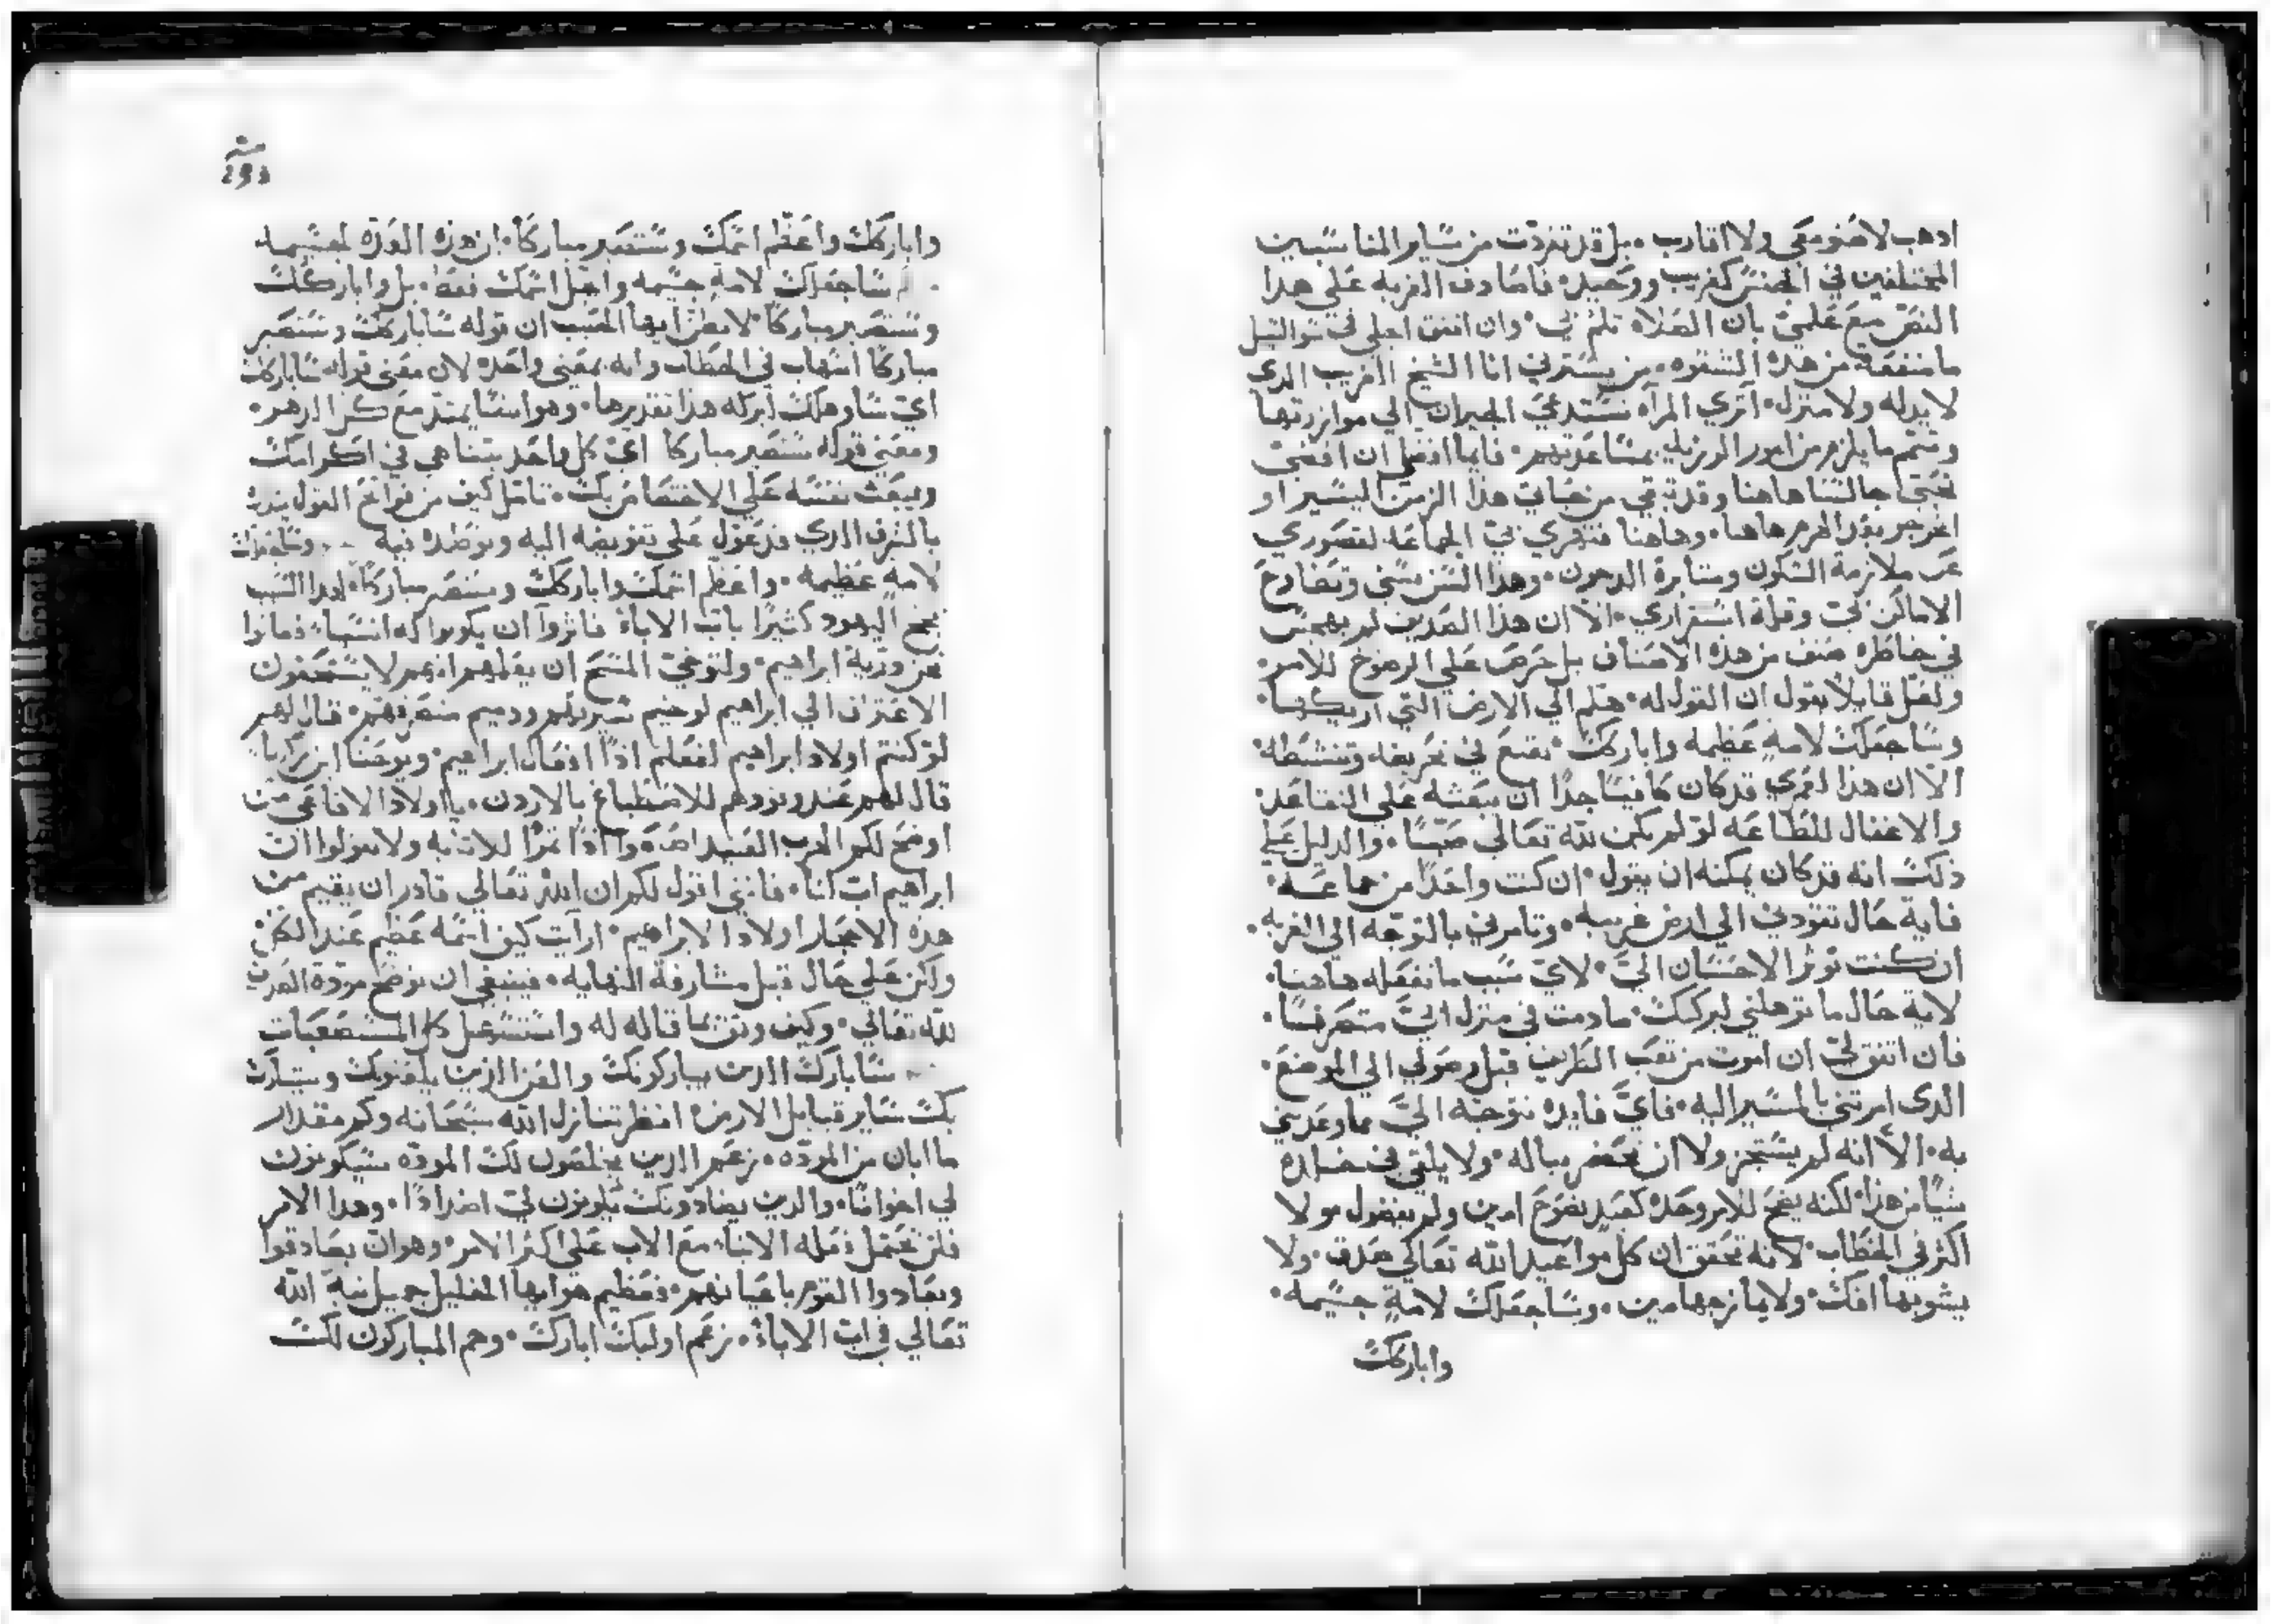 ادهب لا صنو معي ولا اقارب • بل قد تفردت من سٓاير المناسٓبين
المختلفين في الجنسٓ كغريب ووحيد • فاصادف الغربه علي هدا
النصٓ ميع علميٓ بان الصلاه تلم بيٓ • وان اتفق اجلي في
ما منفعة من هده الشقوه • من يسٓترني انا الشيخ الغريب الدي
لا يد له ولا منزل • اتري المرآه تسٓتدعيٓ الجيران الي موازرتها
وتتم ما يلزم من امور بمسٓاعدتهم • فايما افضل ان اقضيٓ
نحبيٓ جالسٓا هاهنا وقد بقي من حياتيٓ هدا الزمن اليسٓير او
الهرم هاهنا • وهاهنا بيٓ الجماعه لقصوري
عن ملازمة السٓكون ومثابرة الدهون • وهدا السٓن سٓني وتضادد
الاماكن بيٓ وقلة اسٓتقراري • الا ان هدا الصديق لم يهجسٓ
في خاطره صنف من هده الاصناف بل حرص علي الرضوخ للامر •
ولعل قايلاً يقول ان القول له • هلم الي الارض التي اريكها •
وسٓاجعلك لامةٍ عظيمه واباركك • يقنع في تحريضه وتنشطه •
الا ان هذا لعمري قد كان كافيسٓا جداً ان يبعثه علي التقاعد •
والاغفال للطاعه لو لم يكن لله تعالي محبسٓا • والدليل علي
ذلك انه قد كان يمكنه ان يقول • ان كنت واحداً من جماعه •
فاية حال تقودني الي ارض غريبه • وتامرني بالتوجه الي الغربه •
ان كنت توثر الاحسٓان اليٓ • لايٓ سٓبب ما تفعله هاهنا •
لاية حال ما تؤهلني لبركتك • ما دمت في منزل ابيٓ متصرفسٓا •
فان اتفق ليٓ ان اموت من تعب الطريق قبل وصولي الي الموضع •
الدي امرتني بالمسٓير اليه • فايٓ فايده تتوجه اليٓ مما وعدتني
به • الا انه لم يسٓتجز ولا ان يخطر بباله • ولا يلقي في خلده
شيا من هدا • لكنه يضع للامر وحده كعبد نصوح امين ولم يفضول مولا
اكثر في الخطاب • لانه تحقق ان كل مواعيد الله تعالي صدق • ولا
يشوبها افك • ولا يمازجها مين • وسٓاجعلك لامةٍ جسٓيمه •
واباركك
293
واباركك واعظم اسٓمك وسٓتصير مباركاً • ان هذه العدة لجسٓيمه
سٓاجعلك لامةٍ جسٓيمه واجل اسٓمك فقط • بل واباركك
وسٓتصير مباركاً • لا تظن ايها الحبيب ان قوله سٓاباركك وسٓتصير
مباركاً اسٓهاب في الخطاب وانه بمعني واحد • لان معني قوله سٓاباركك
ايٓ سٓاوهلك لبركه هذا تقديرها • وهو انها يمتد مع كل الدهر •
ومعني قوله سٓتصير مباركا ايٓ كل واحد يتناهي في اكرامك
ويبعث نفسٓه علي الاختصاص بك • تامل كيف من فواتح القول ينذر
بالشرف الذي قد عول علي تفويضه اليه وتوطده فيه وسٓاجعلك
لامةٍ عظيمه • واعظم اسٓمك واباركك وسٓتصير مباركاً • لهدا السٓبب
يجنح اليهود كثيراً باب الاباء فاثروا ان يكونوا له انسٓبا • فقالوا
نحن ذرية ابراهيم • ولتوخيٓ المسٓيح ان يعلمهم انهم لا يسٓتحقون
الاعتزا الي ابراهيم لوخيم سٓيرتهم ودميم متصرفهم • قال لهم
لو كنتم اولاد ابراهيم لفعلتم اداً افعال ابراهيم • ويوحنا ابن زكريا
قال لهم عند ورودهم للاصطباغ بالاردن • يا اولاد الافاعي من
اوضح لكم الهرب اصنعوا اداً ثمراً للانابه ولا تقولوا ان
ابراهيم اب لنا • فانني اقول لكم ان الله تعالي قادر ان يقيم من
هده الاحجار اولاداً لابراهيم • ارايت كيف اسٓمه عظيم عند الكل •
ولكن علي حال قبل مشارفة النهايه • فينبغي ان نوضح مودة
لله تعالي • وكيف وثق بما قاله له واسٓتسٓهل كل المسٓتصعبات
سٓابارك الدين يباركونك والعن الدين يلعنوك وسٓيتبارك
بك سٓاير قبايل الارض • انظر تنازل الله سٓبحانه وكم مقدار
ما ابان من الموده • زعم الدين يخلصون لك الموده سٓيكونون
لي اخواناً • والدين يضادونك يكونون ليٓ اضداداً • وهدا الامر
فلن يحتمل فعله الابناء مع الاب علي اكثر الامر • وهو ان يصادقوا
ويعادوا القوم باعيانهم • فعظيم هو ايها الخليل جميل نيه الله
تعالي في اب الاباء • زعم اوليك ابارك • وهم المباركون لك